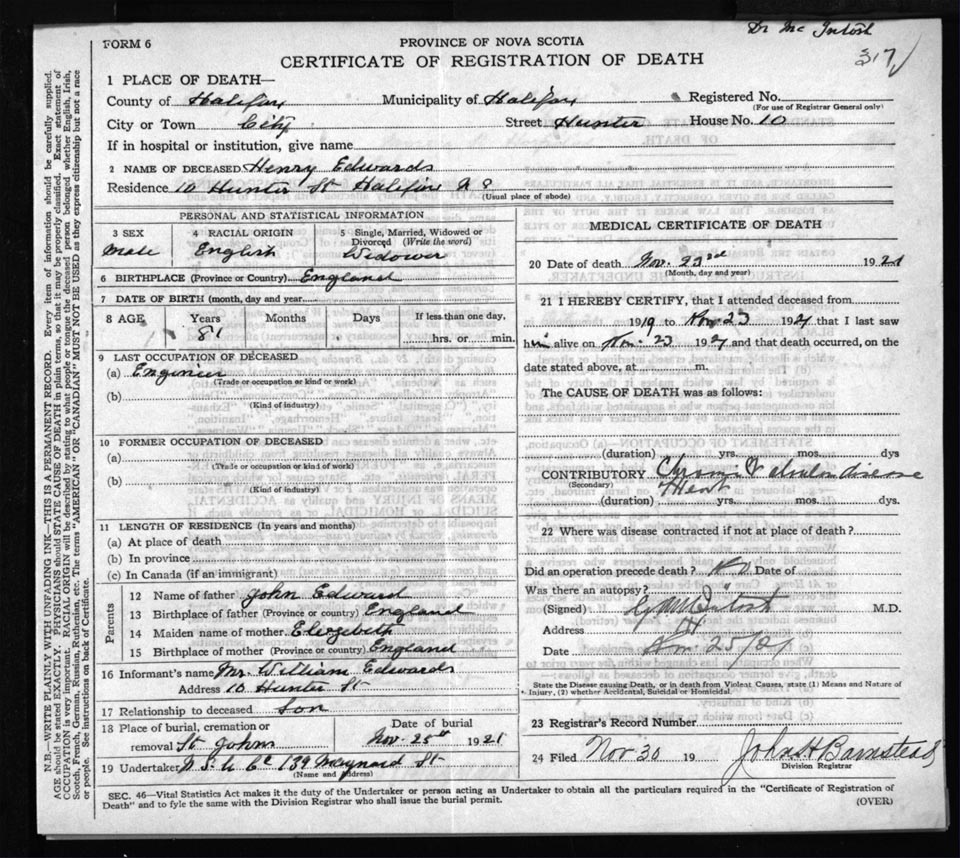 Dr McIntosh
317
FORM 6
PROVINCE OF NOVA SCOTIA
CERTIFICATE OF REGISTRATION OF DEATH
1 PLACE OF DEATH—
County of Halifax Municipality of Halifax Registered No.
(For use of Registrar General only)
City or Town City Street Hunter House No. 10
If in hospital or institution, give name
2 NAME OF DECEASED Henry Edwards
Residence 10 Hunter St Halifax N S
(Usual place of abode)
PERSONAL AND STATISTICAL INFORMATION
3 SEX 4 RACIAL ORIGIN 5 Single, Married, Widowed or Divorced (Write the word)
Male English Widower
6 BIRTHPLACE (Province or Country) England
7 DATE OF BIRTH (month, day and year)
8 AGE Years Months Days If less than one day,
81 hrs. or min.
9 LAST OCCUPATION OF DECEASED
(a) Enginier
(Trade or occupation or kind or work)
(b)
(Kind of industry)
10 FORMER OCCUPATION OF DECEASED
(a)
(Trade or occupation or kind of work)
(b)
(Kind of industry)
11 LENGTH OF RESIDENCE (In years and months)
(a) At place of death
(b) In province
(c) In Canada (if an immigrant)
Parents
12 Name of father John Edward
13 Birthplace of father (Province or country) England
14 Maiden name of mother Elezebeth
15 Birthplace of mother (Province or country) England
16 Informant's name Mr. William Edwards
Address 10 Hunter St
17 Relationship to deceased Son
18 Place of burial, cremation or Date of burial
removal St Johns Nov. 25th 1921
19 Undertaker 139 Maynard St
(Name and Address)
MEDICAL CERTIFICATE OF DEATH
20 Date of death Nov. 23rd 1921
(Month, day and year)
21 I HEREBY CERTIFY, that I attended deceased from
1919 to Nov 23 1921 that I last saw
him alive on Nov. 23 1921 and that death occurred, on the
date stated above, at m.
The CAUSE OF DEATH was as follows:
(duration) yrs. mos. dys
CONTRIBUTORY Chronic Valvular disease
(Secondary) Heart
(duration) yrs. mos. dys.
22 Where was disease contracted if not at place of death?
Did an operation precede death? No Date of
Was there an autopsy?
(Signed) McIntosh M.D.
Address
Date Nov. 25/21
State the Disease causing Death, or in death from Violent Causes, state (1) Means and Nature of
Injury, (2) whether Accidental, Suicidal or Homicidal
23 Registrar's Record Number
24 Filed Nov 30 19 John H Barnstead
Division Registrar
SEC. 46—Vital Statistics Act makes it the duty of the Undertaker or person acting as Undertaker to obtain all the particulars required in the "Certificate of Registration of
Death" and to fyle the same with the Division Registrar who shall issue the burial permit.
(OVER)
N.B.—WRITE PLAINLY WITH UNFADING INK—THIS IS A PERMANENT RECORD. Every item of information should be carefully supplied.
AGE should be stated EXACTLY. PHYSICIANS should STATE CAUSE OF DEATH in plain terms, so that it may be properly classified. Exact statement of
OCCUPATION is very important. RACIAL ORIGIN will be described by stating to what people or tongue the deceased person belonged whether English, Irish,
Scotch, French, German, Russian, Ruthenian, etc. The terms "AMERICAN" OR "CANADIAN" MUST NOT BE USED as they express citizenship but not a race
or people. See instructions on back of Certificate.